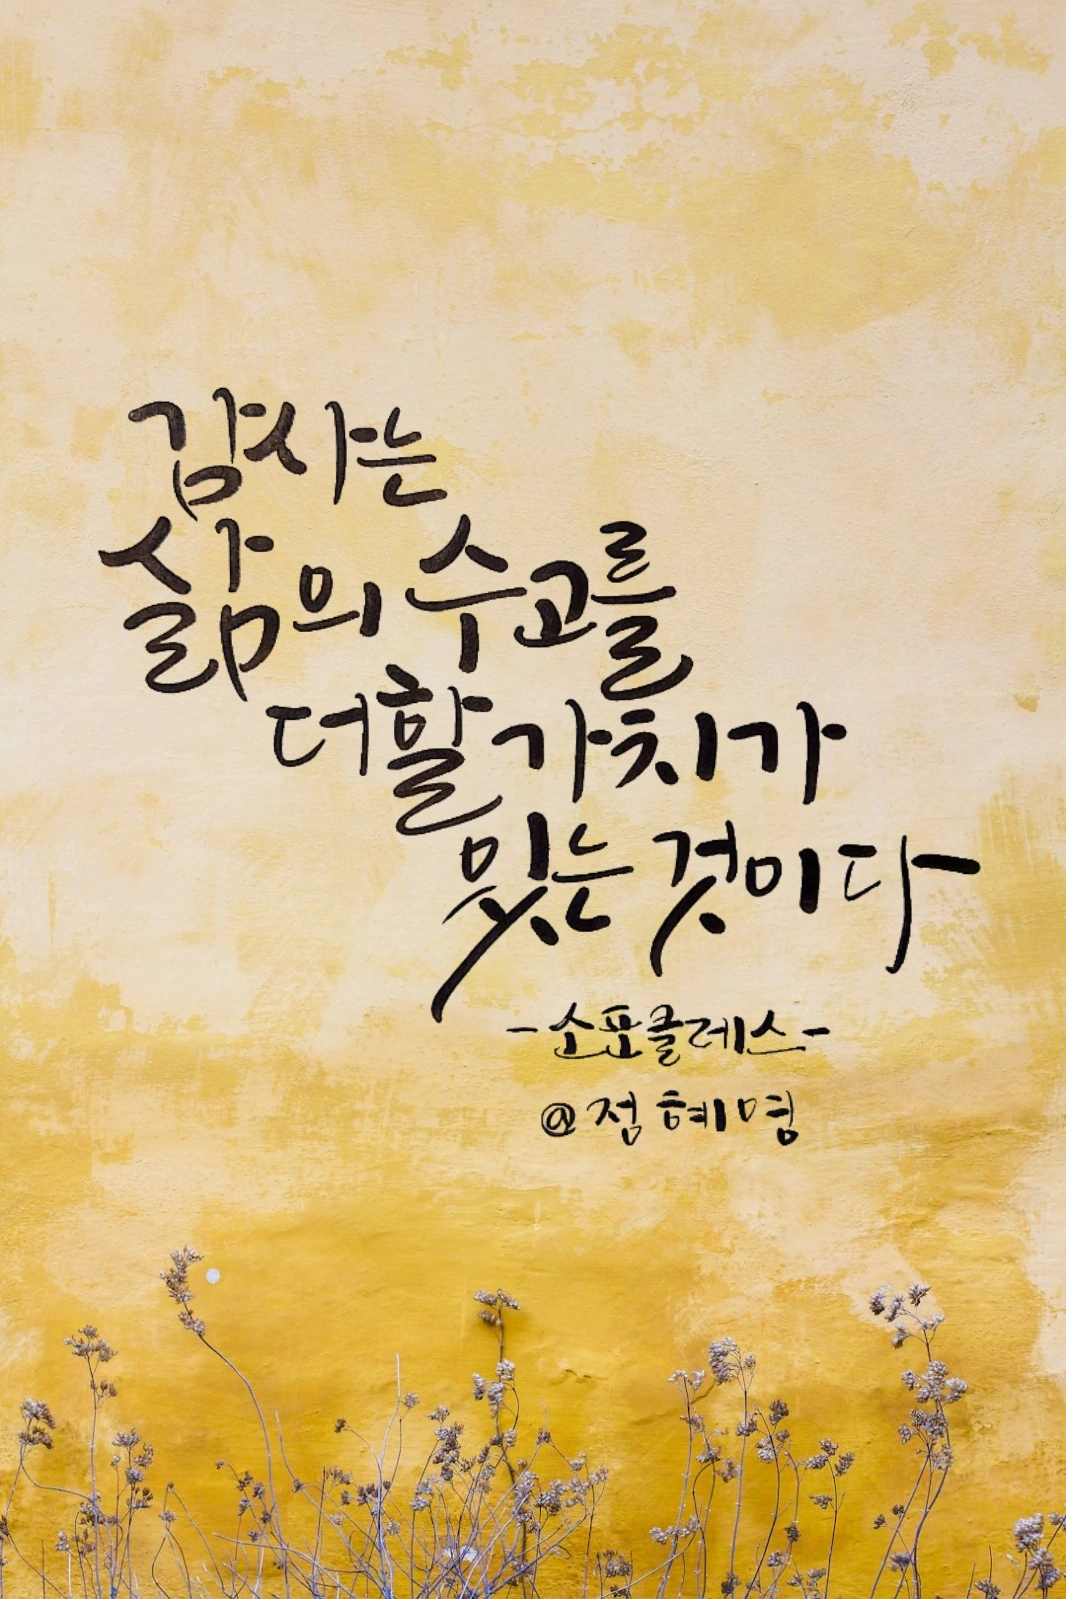 감사는
삶의 수고를
더할 가치가
있는 것이다
-소포클레스-
@정혜명